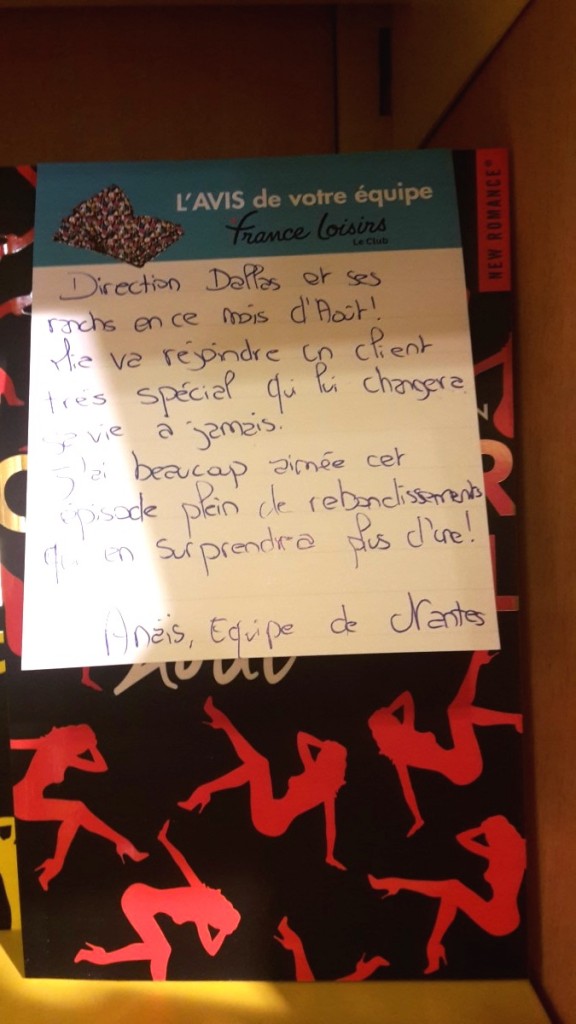 L'AVIS de votre équipe
France Loisirs
Le Club
NEW ROMANCE®
Direction Dallas et ses
ranchs en ce mois d'Août!
Mia va rejoindre un client
très spécial qui lui changera
sa vie a jamais.
J'ai beaucoup aimée cet
épisode plein de rebondissements
qui en surprendra plus d'une!
Anaïs, Equipe de Nantes
R
Août